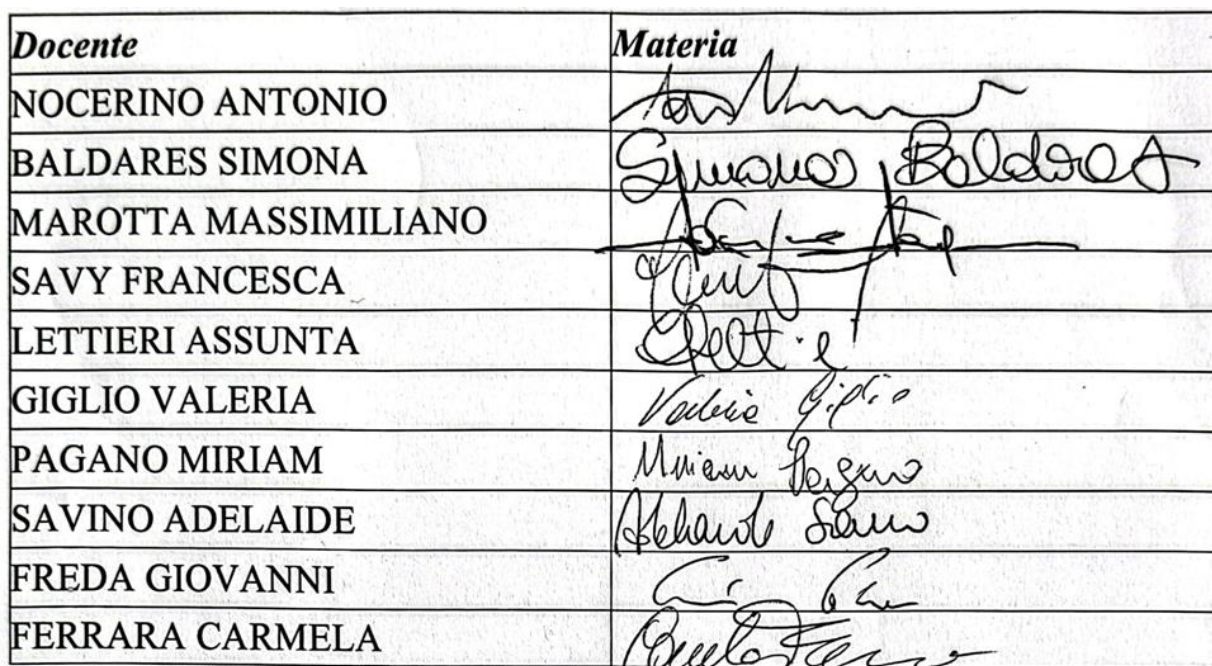 Docente Materia
NOCERINO ANTONIO
BALDARES SIMONA Simona Baldares
MAROTTA MASSIMILIANO
SAVY FRANCESCA
LETTIERI ASSUNTA
GIGLIO VALERIA Valeria Giglio
PAGANO MIRIAM Miriam Pagano
SAVINO ADELAIDE Adelaide Savino
FREDA GIOVANNI
FERRARA CARMELA